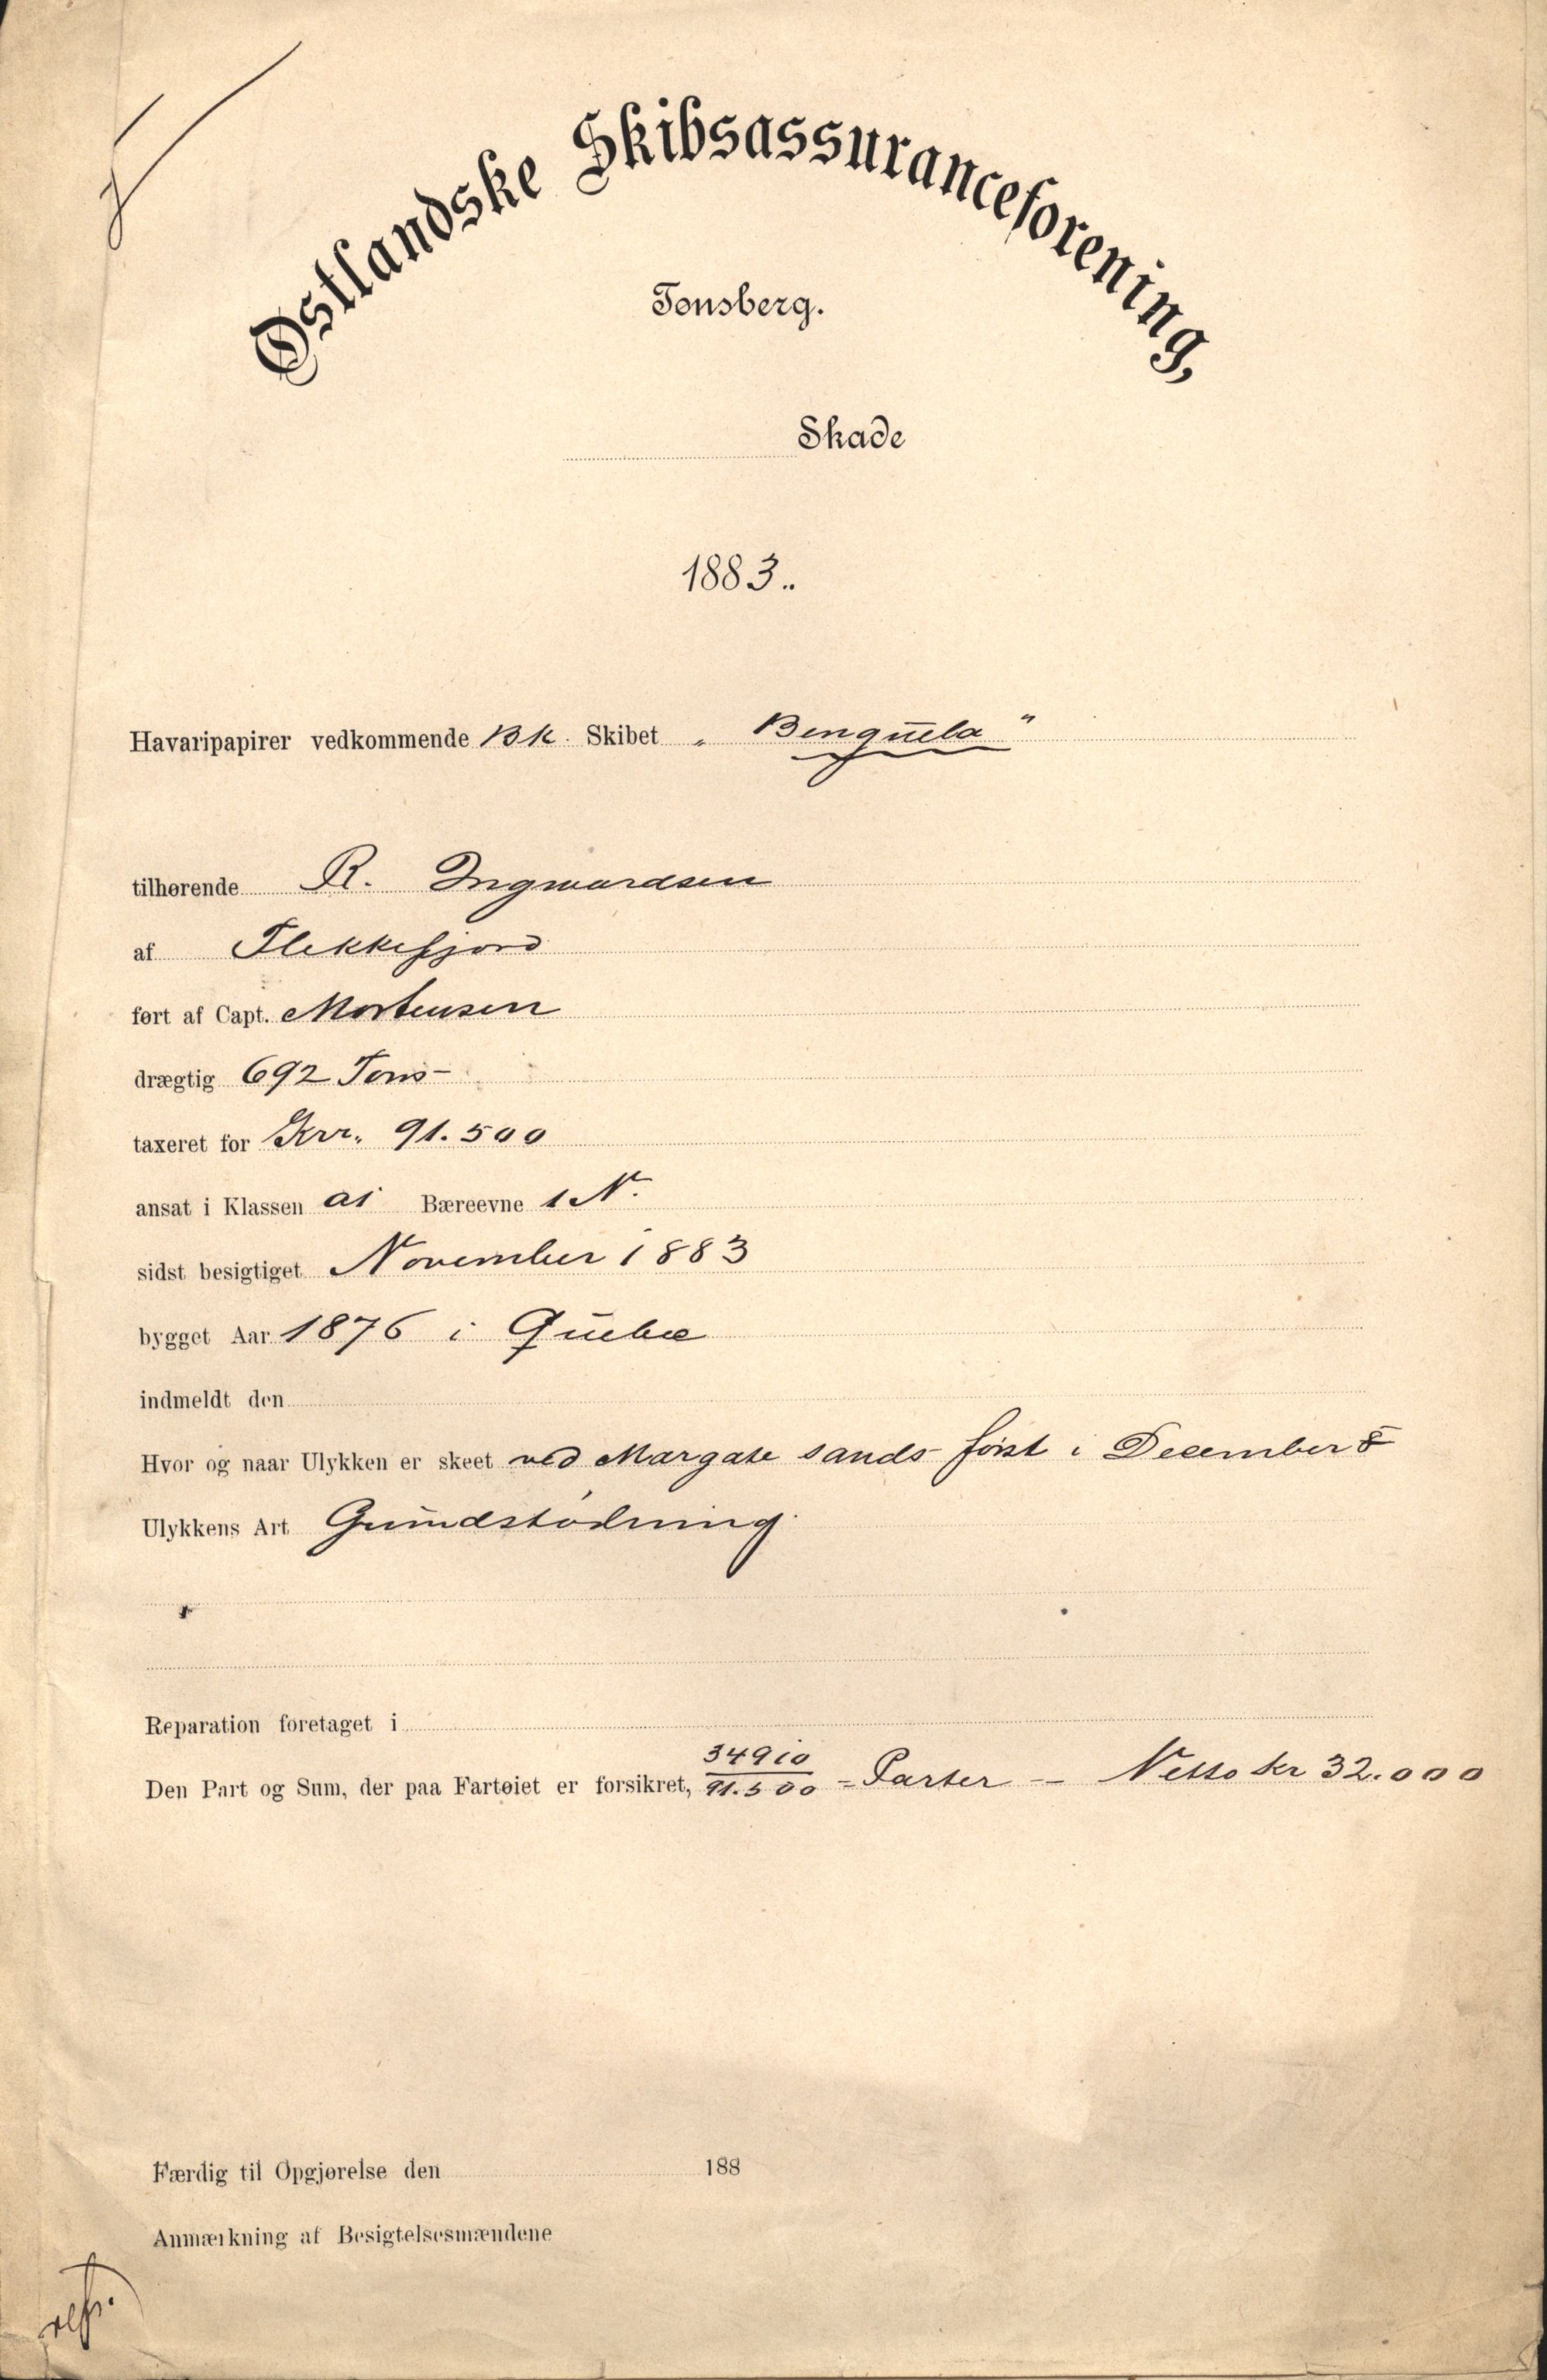 Østlandske Skibsassuranceforening,
Tønsberg.
Skade
1883..
Havaripapirer vedkommende Bk. Skibet „ Benguela "
tilhørende R. Ingwardsen
af Flekkefjord
ført af Capt. Mortensen
drægtig 692 Tons -
taxeret for Krr. 91.500
ansat i Klassen a1 Bæreevne 1 N.
sidst besigtiget November 1883
bygget Aar 1876 i Quebec
indmeldt den
Hvor og naar Ulykken er skeet ved Margate sands - først i December
Ulykkens Art Grundstødning.
Reparation foretaget i
34910
Den Part og Sum, der paa Fartøiet er forsikret, 91.500 - Parter - Netto kr 32.000
Færdig til Opgjørelse den 188
Anmærkning af Besigtelsesmændene